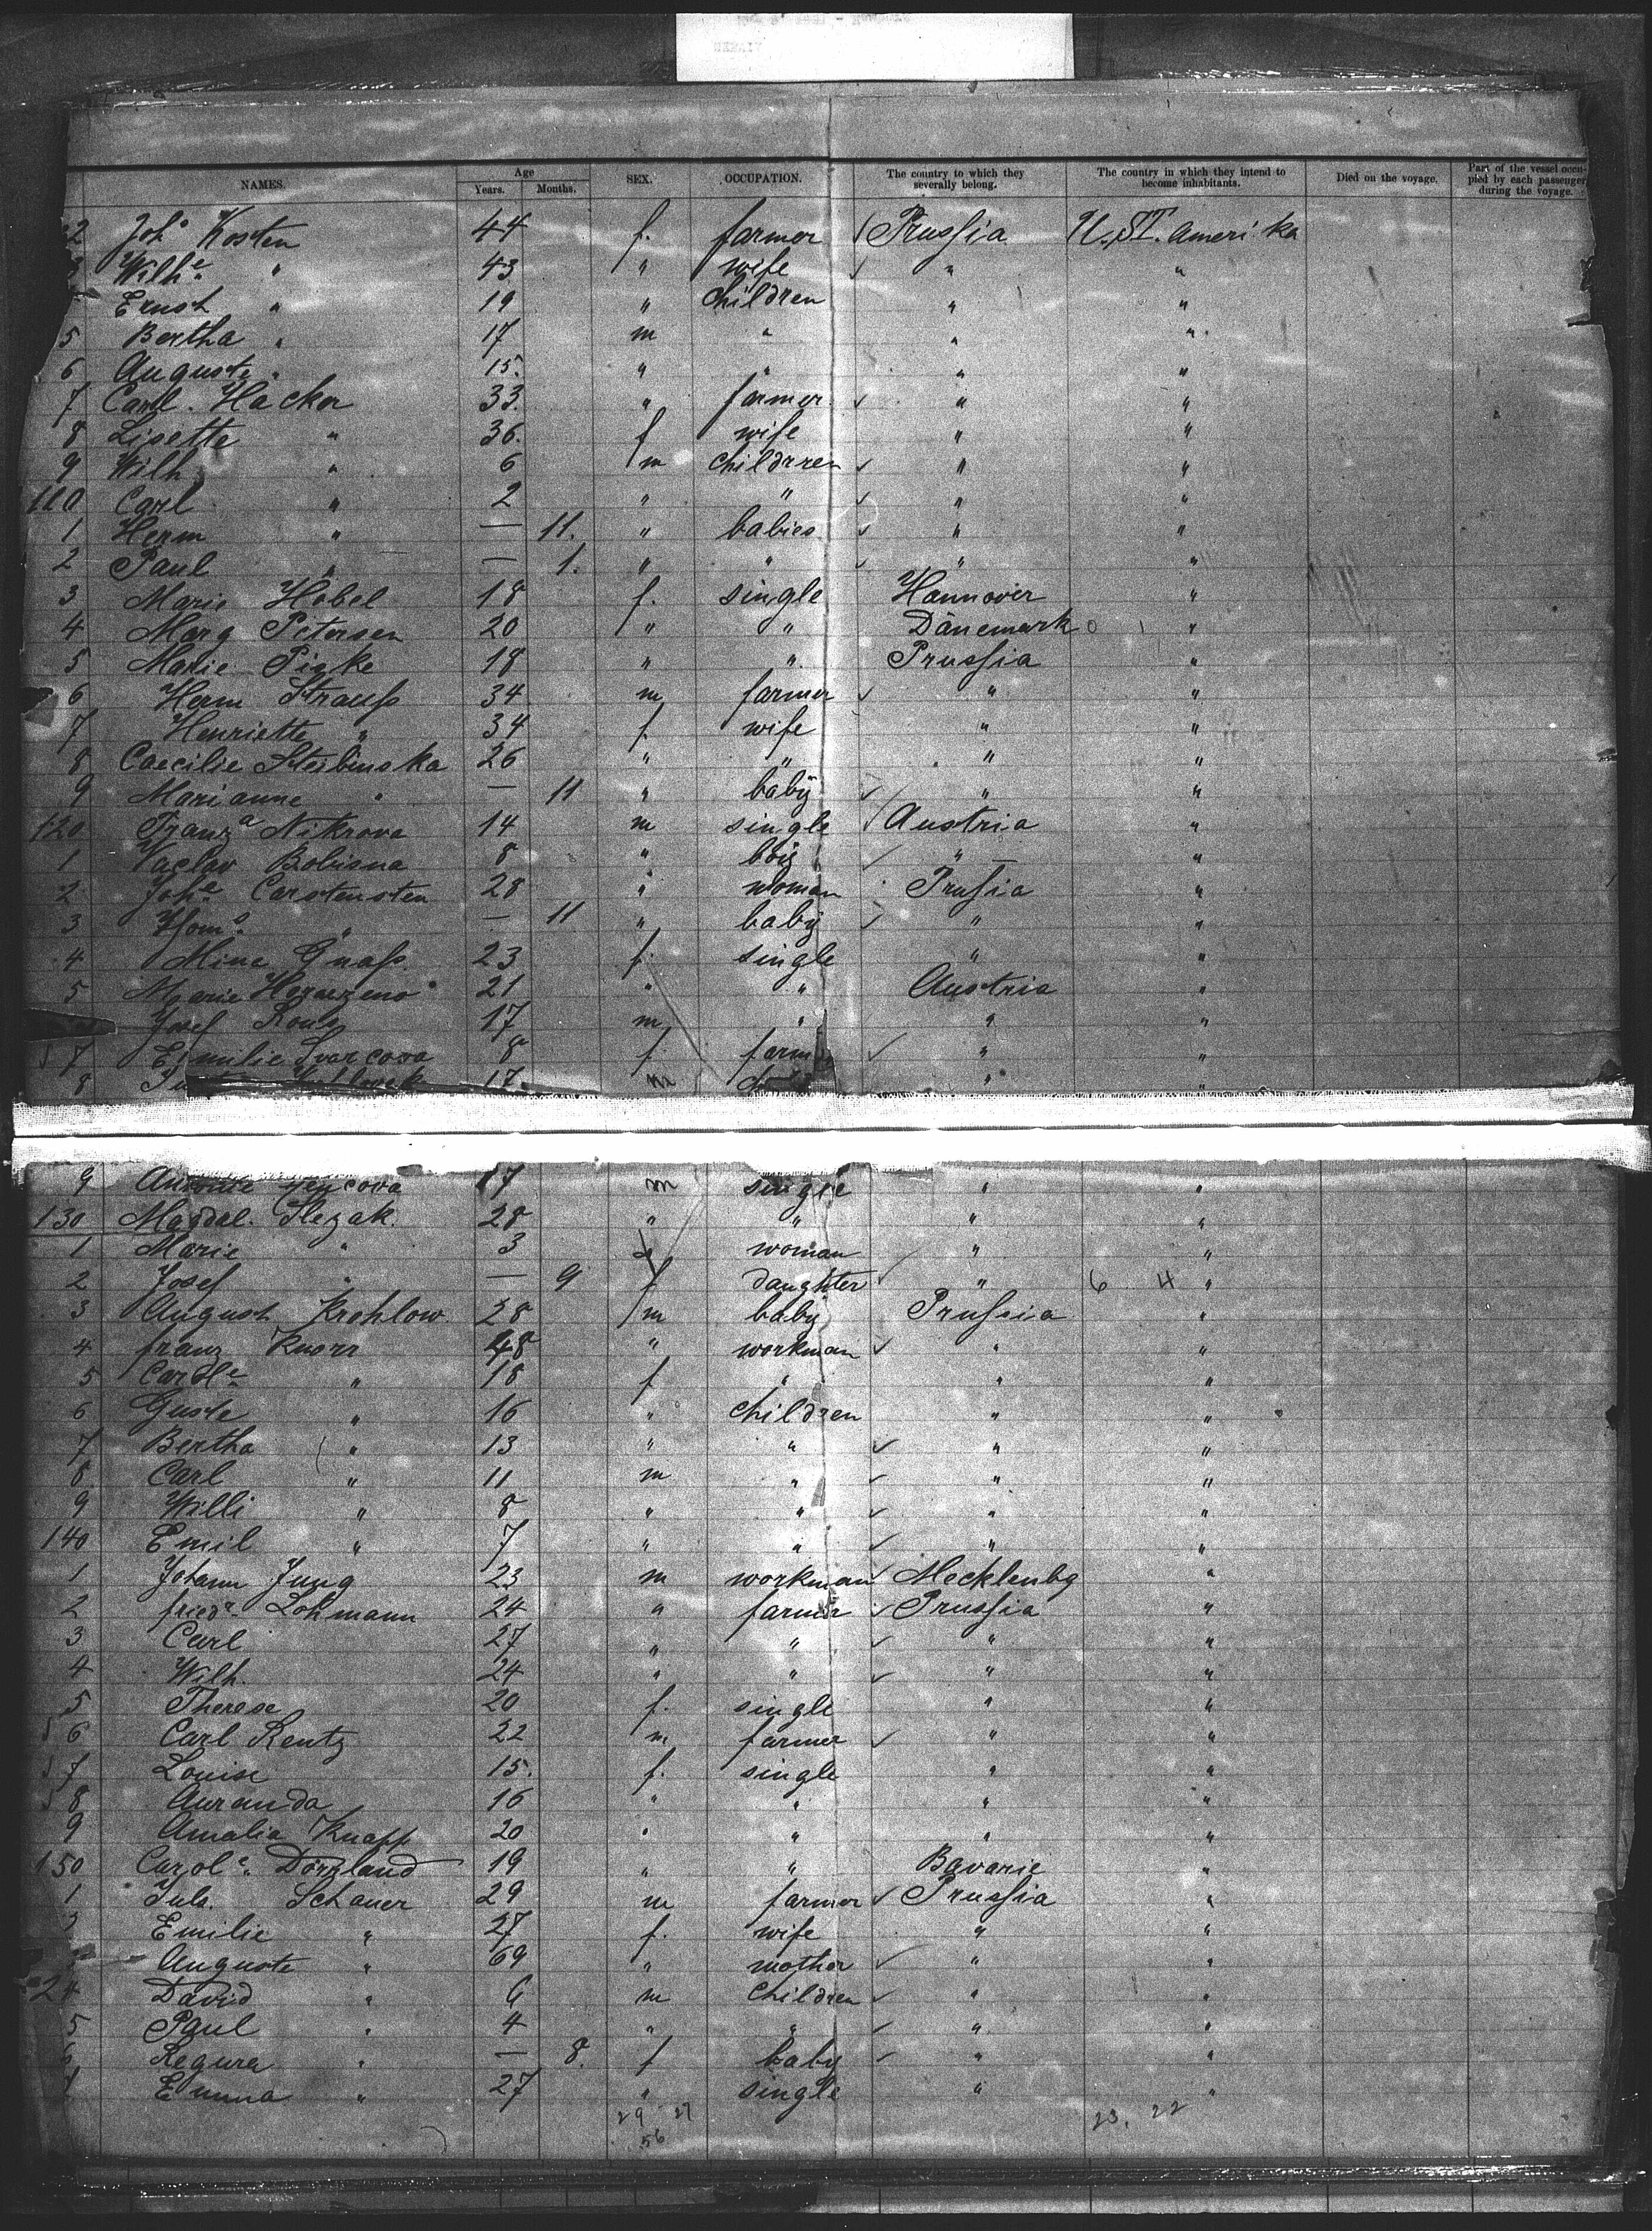 NAMES. Age Years. Months. SEX. OCCUPATION. The country to which they severally belong. The country in which they intend to become inhabitants. Died on the voyage. Part of the vessel occupied by each passenger during the voyage.
2 Joh. Kosten 44 f. farmer Prussia U. ST. Amerika
Wilhe " 43 " wife " "
Ernst " 19 " children " "
5 Bertha " 17 m " " "
6 Auguste " 15. " " " "
7 Carl. Hacker 33. " farmer " "
8 Lisette " 36. f wife " "
9 Wilh " 6 m childrren " "
110 Carl " 2 " " " "
1 Herm " — 11. " babies " "
2 Paul " — 1. " " " "
3 Marie Hobel 18 f. single Hannover "
4 Marg Petersen 20 " " Dänemark "
5 Marie Piske 18 " " Prussia "
6 Herm Strauss 34 m farmer " "
7 Henriette " 34 f. wife " "
8 Caecilie 26 " " " "
9 Marianne " — 11 " baby " "
120 Franza Nikrova 14 m single Austria "
1 Vaclav Bobisna 8 " boy " "
2 Johe Carstensten 28 " woman Prussia "
3 " — 11 " baby " "
4 Mine Gnass 23 f. single " "
5 Marie 21 " " Austria "
Josef 17 m " " "
7 Emilie Svarcova 8 f. " "
8 17 m " "
9 17 m single " "
130 Magdal. Slezak. 28 " " " "
1 Marie " 3 woman " "
2 Josef " — 9 f daughter " 6 4 "
3 August Krohlow 28 m baby Prussia "
4 franz Knorr 48 " workman " "
5 Carole " 18 f " " "
6 Guste " 16 " children " "
7 Bertha " 13 " " " "
8 Carl " 11 m " " "
9 Willi " 8 " " " "
140 Emil " 7 " " " "
1 Johann Jung 23 m workman Mecklenbg "
2 friedr. Lohmann 24 " farmer Prussia "
3 Carl 27 " " " "
4 Wilh. 24 " " " "
5 Therese 20 f. single " "
6 Carl Rentz 22 m farmer " "
7 Louise 15. f. single " "
8 Auranda 16 " " " "
9 Amalia Knapp 20 " " " "
150 Carole. Dörgland 19 " " Bavarie "
1 Juls. Schauer 29 m farmer Prussia "
Emilie " 27 f. wife " "
Auguste " 69 " mother " "
4 David " 6 m children " "
5 Paul " 4 " " " "
Regura " — 8. f baby " "
Emma " 27 " single " "
29 27 23. 22
56